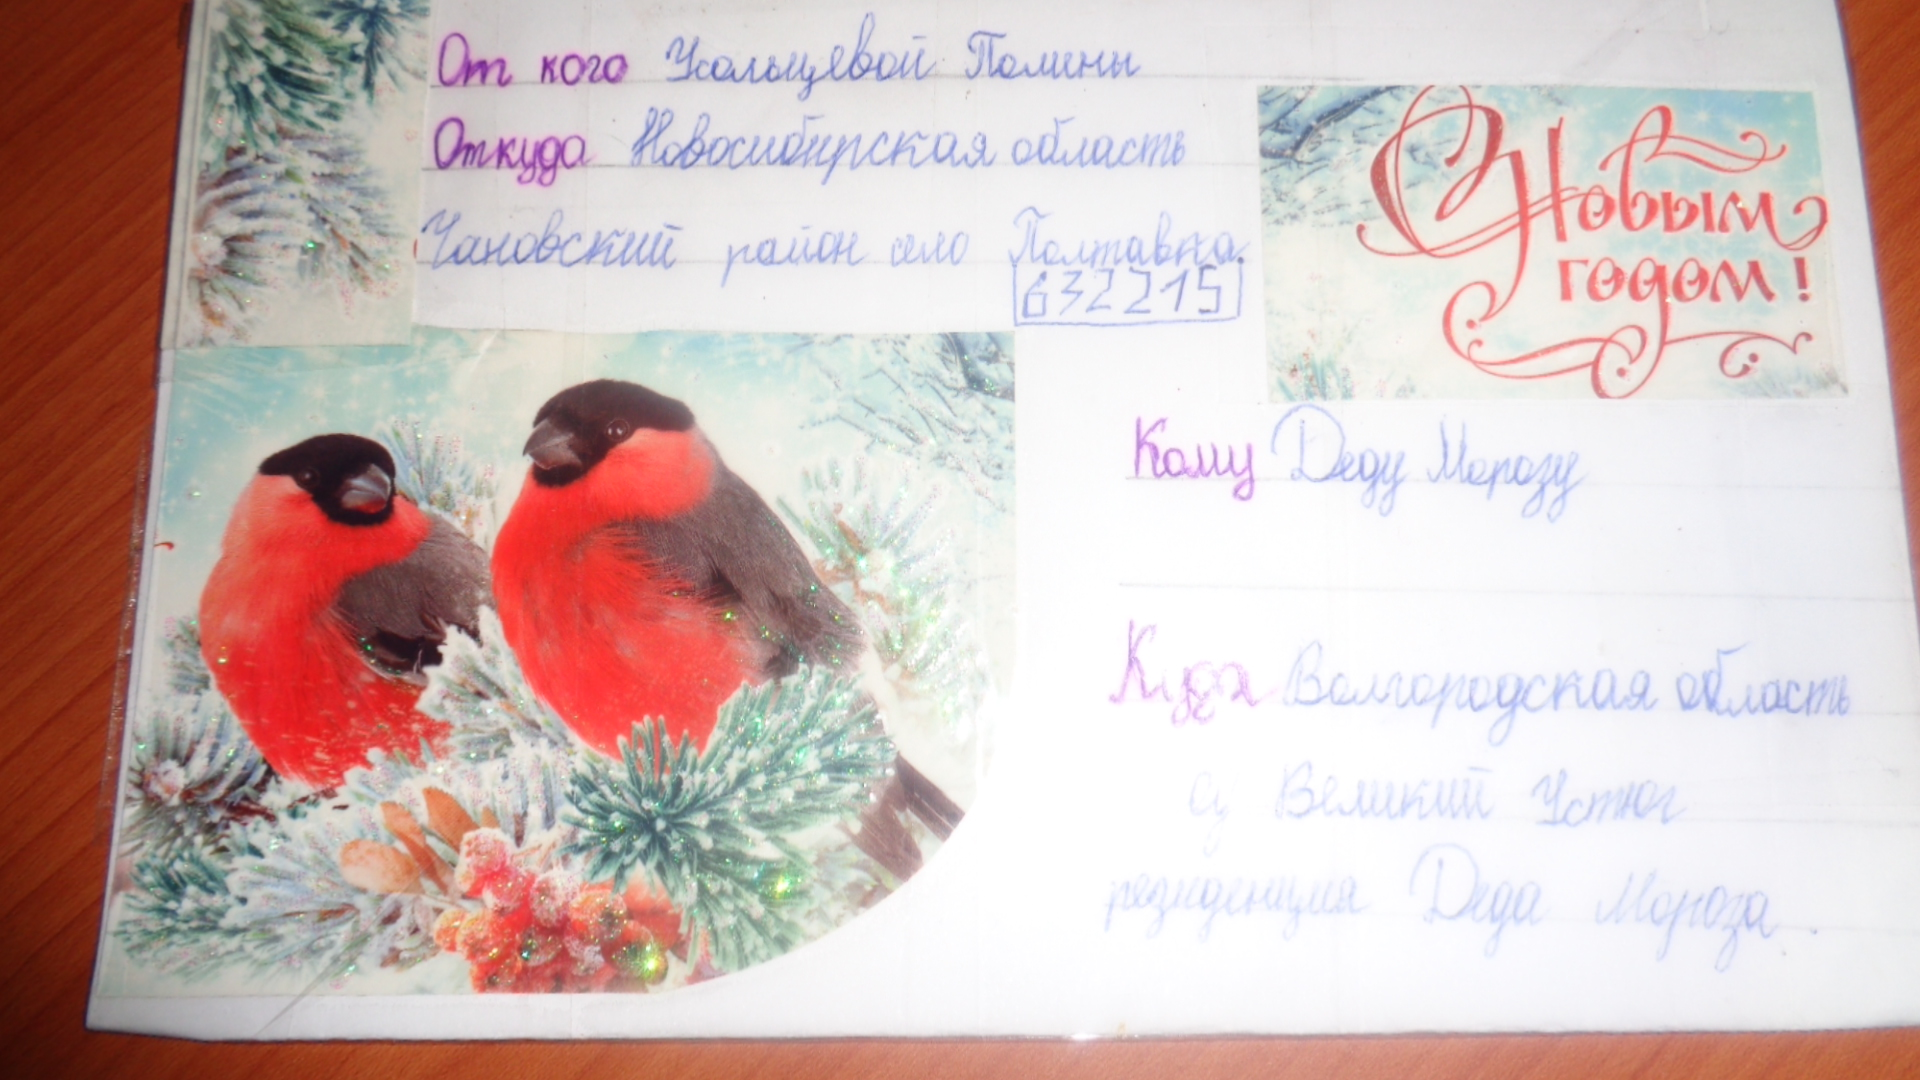 От кого Усольцевой Полины
Откуда Новосибирская область
Чановский район село Полтавка.
632215
С Новым
годом!
Кому Деду Морозу
Куда Волгородская область
су Великий Устюг
резиденция Деда Мороза.